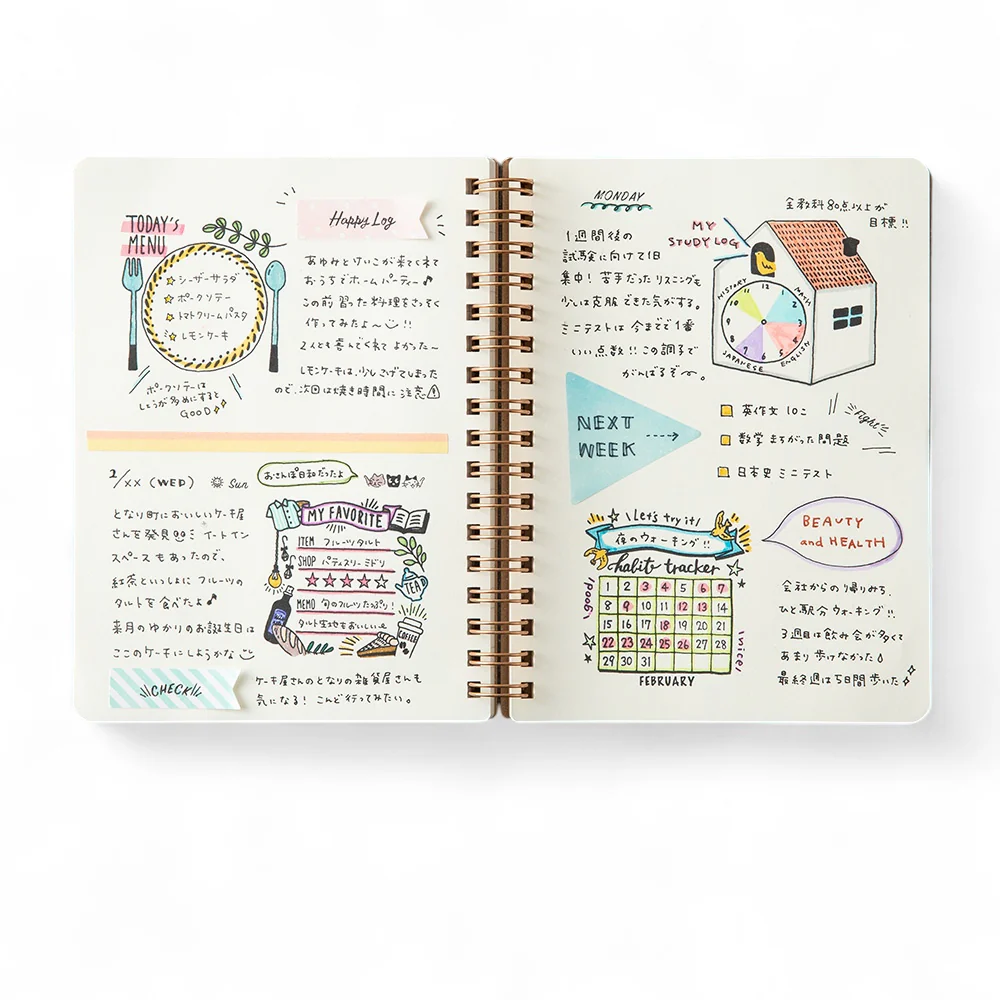 TODAY'S
MENU
シーザーサラダ
ポークソテー
トマトクリームパスタ
レモンケーキ
ポークソテーは
しょうが多めにすると
GOOD
Happy Log
あゆみとけいこが来てくれて
おうちでホームパーティー♪
この前習った料理をさっそく
作ってみたよ〜!!
2人とも喜んでくれてよかった〜
レモンケーキは、少しこげてしまった
ので、次回は焼き時間に注意
2/××(WED) Sun
おさんぽ日和だったよ
となり町においしいケーキ屋
さんを発見!! イートイン
スペースもあったので、
紅茶といっしょに フルーツの
タルトを食べたよ♪
来月のゆかりのお誕生日は
ここのケーキにしようかな
MY FAVORITE
ITEM フルーツタルト
SHOP パティスリー ミドリ
★★★★★
MEMO 旬のフルーツたっぷり!
タルト生地もおいしい
TEA
COFFEE
CHECK!
ケーキ屋さんのとなりの雑貨屋さんも
気になる! こんど行ってみたい。
MONDAY
1週間後の
試験に向けて1日
集中! 苦手だったリスニングも
少しは克服できた気がする。
ミニテストは今までで1番
いい点数!! この調子で
がんばるぞ〜。
MY
STUDY LOG
全教科80点以上が
目標!!
HISTORY
MATH
JAPANESE
ENGLISH
12 1 2 3 4 5 6 7 8 9 10 11
NEXT
WEEK
英作文 10コ
数学 まちがった問題
日本史 ミニテスト
Fight
Let's try it!
夜のウォーキング!!
habit tracker
good!
nice!
1 2 3 4 5 6 7
8 9 10 11 12 13 14
15 16 17 18 19 20 21
22 23 24 25 26 27 28
29 30 31
FEBRUARY
BEAUTY
and HEALTH
会社からの帰りみち、
ひと駅分ウォーキング!!
3週目は飲み会が多くて
あまり歩けなかった
最終週は5日間歩いた